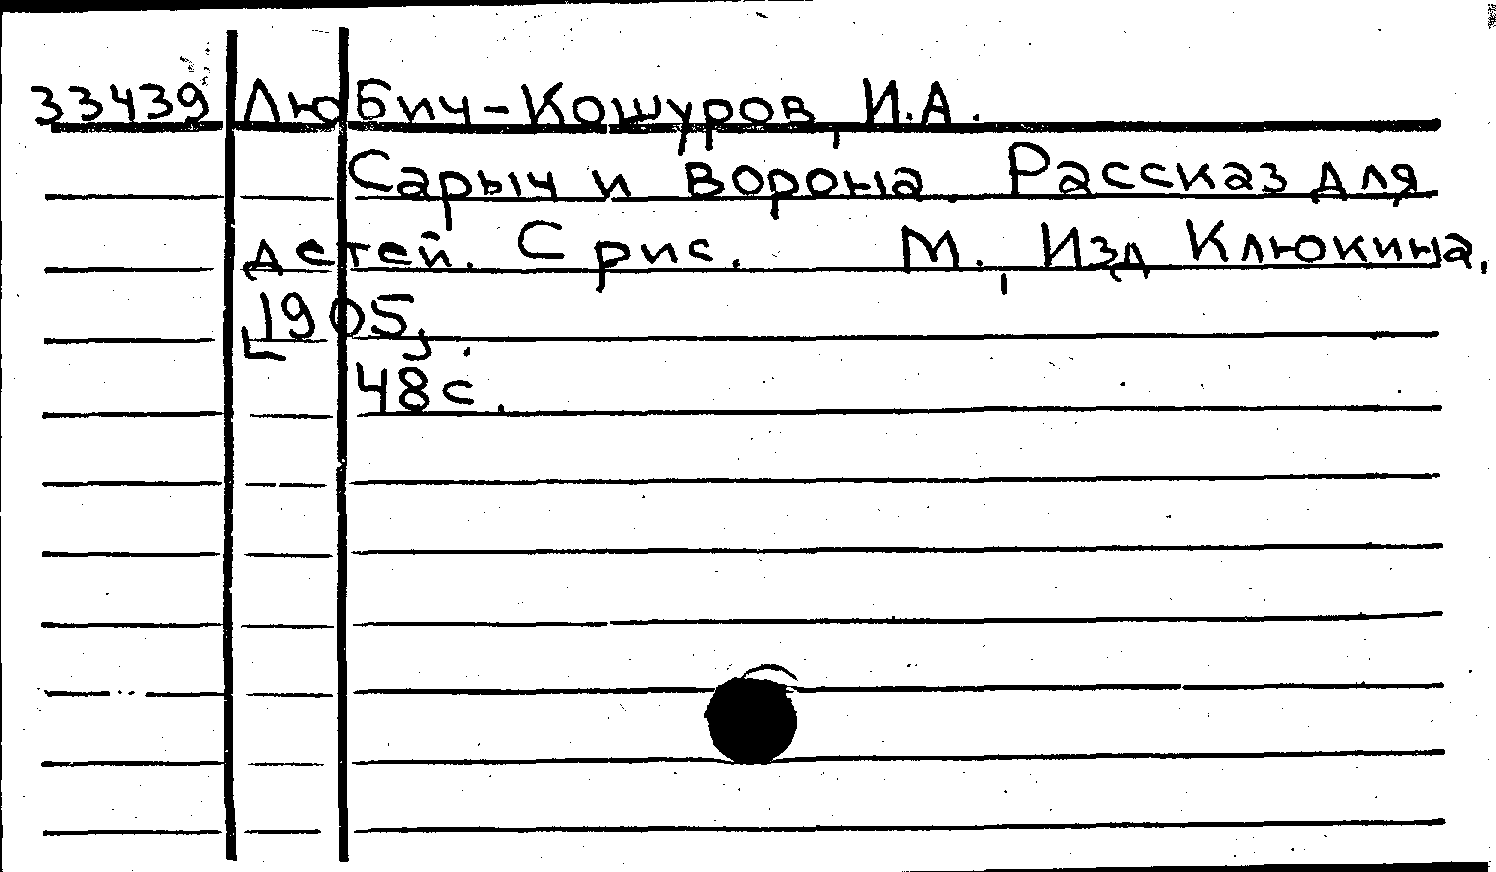 33439 Любич-Кошуров, И.А.
Сарыч и ворона. Рассказ для
детей. С рис. М., Изд Клюкина,
[1905].
48 с.